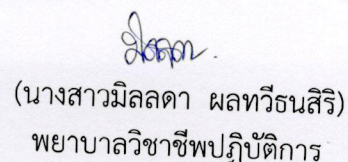 (นางสาวมิลลดา ผลทวีธนสิริ)
พยาบาลวิชาชีพปฏิบัติการ